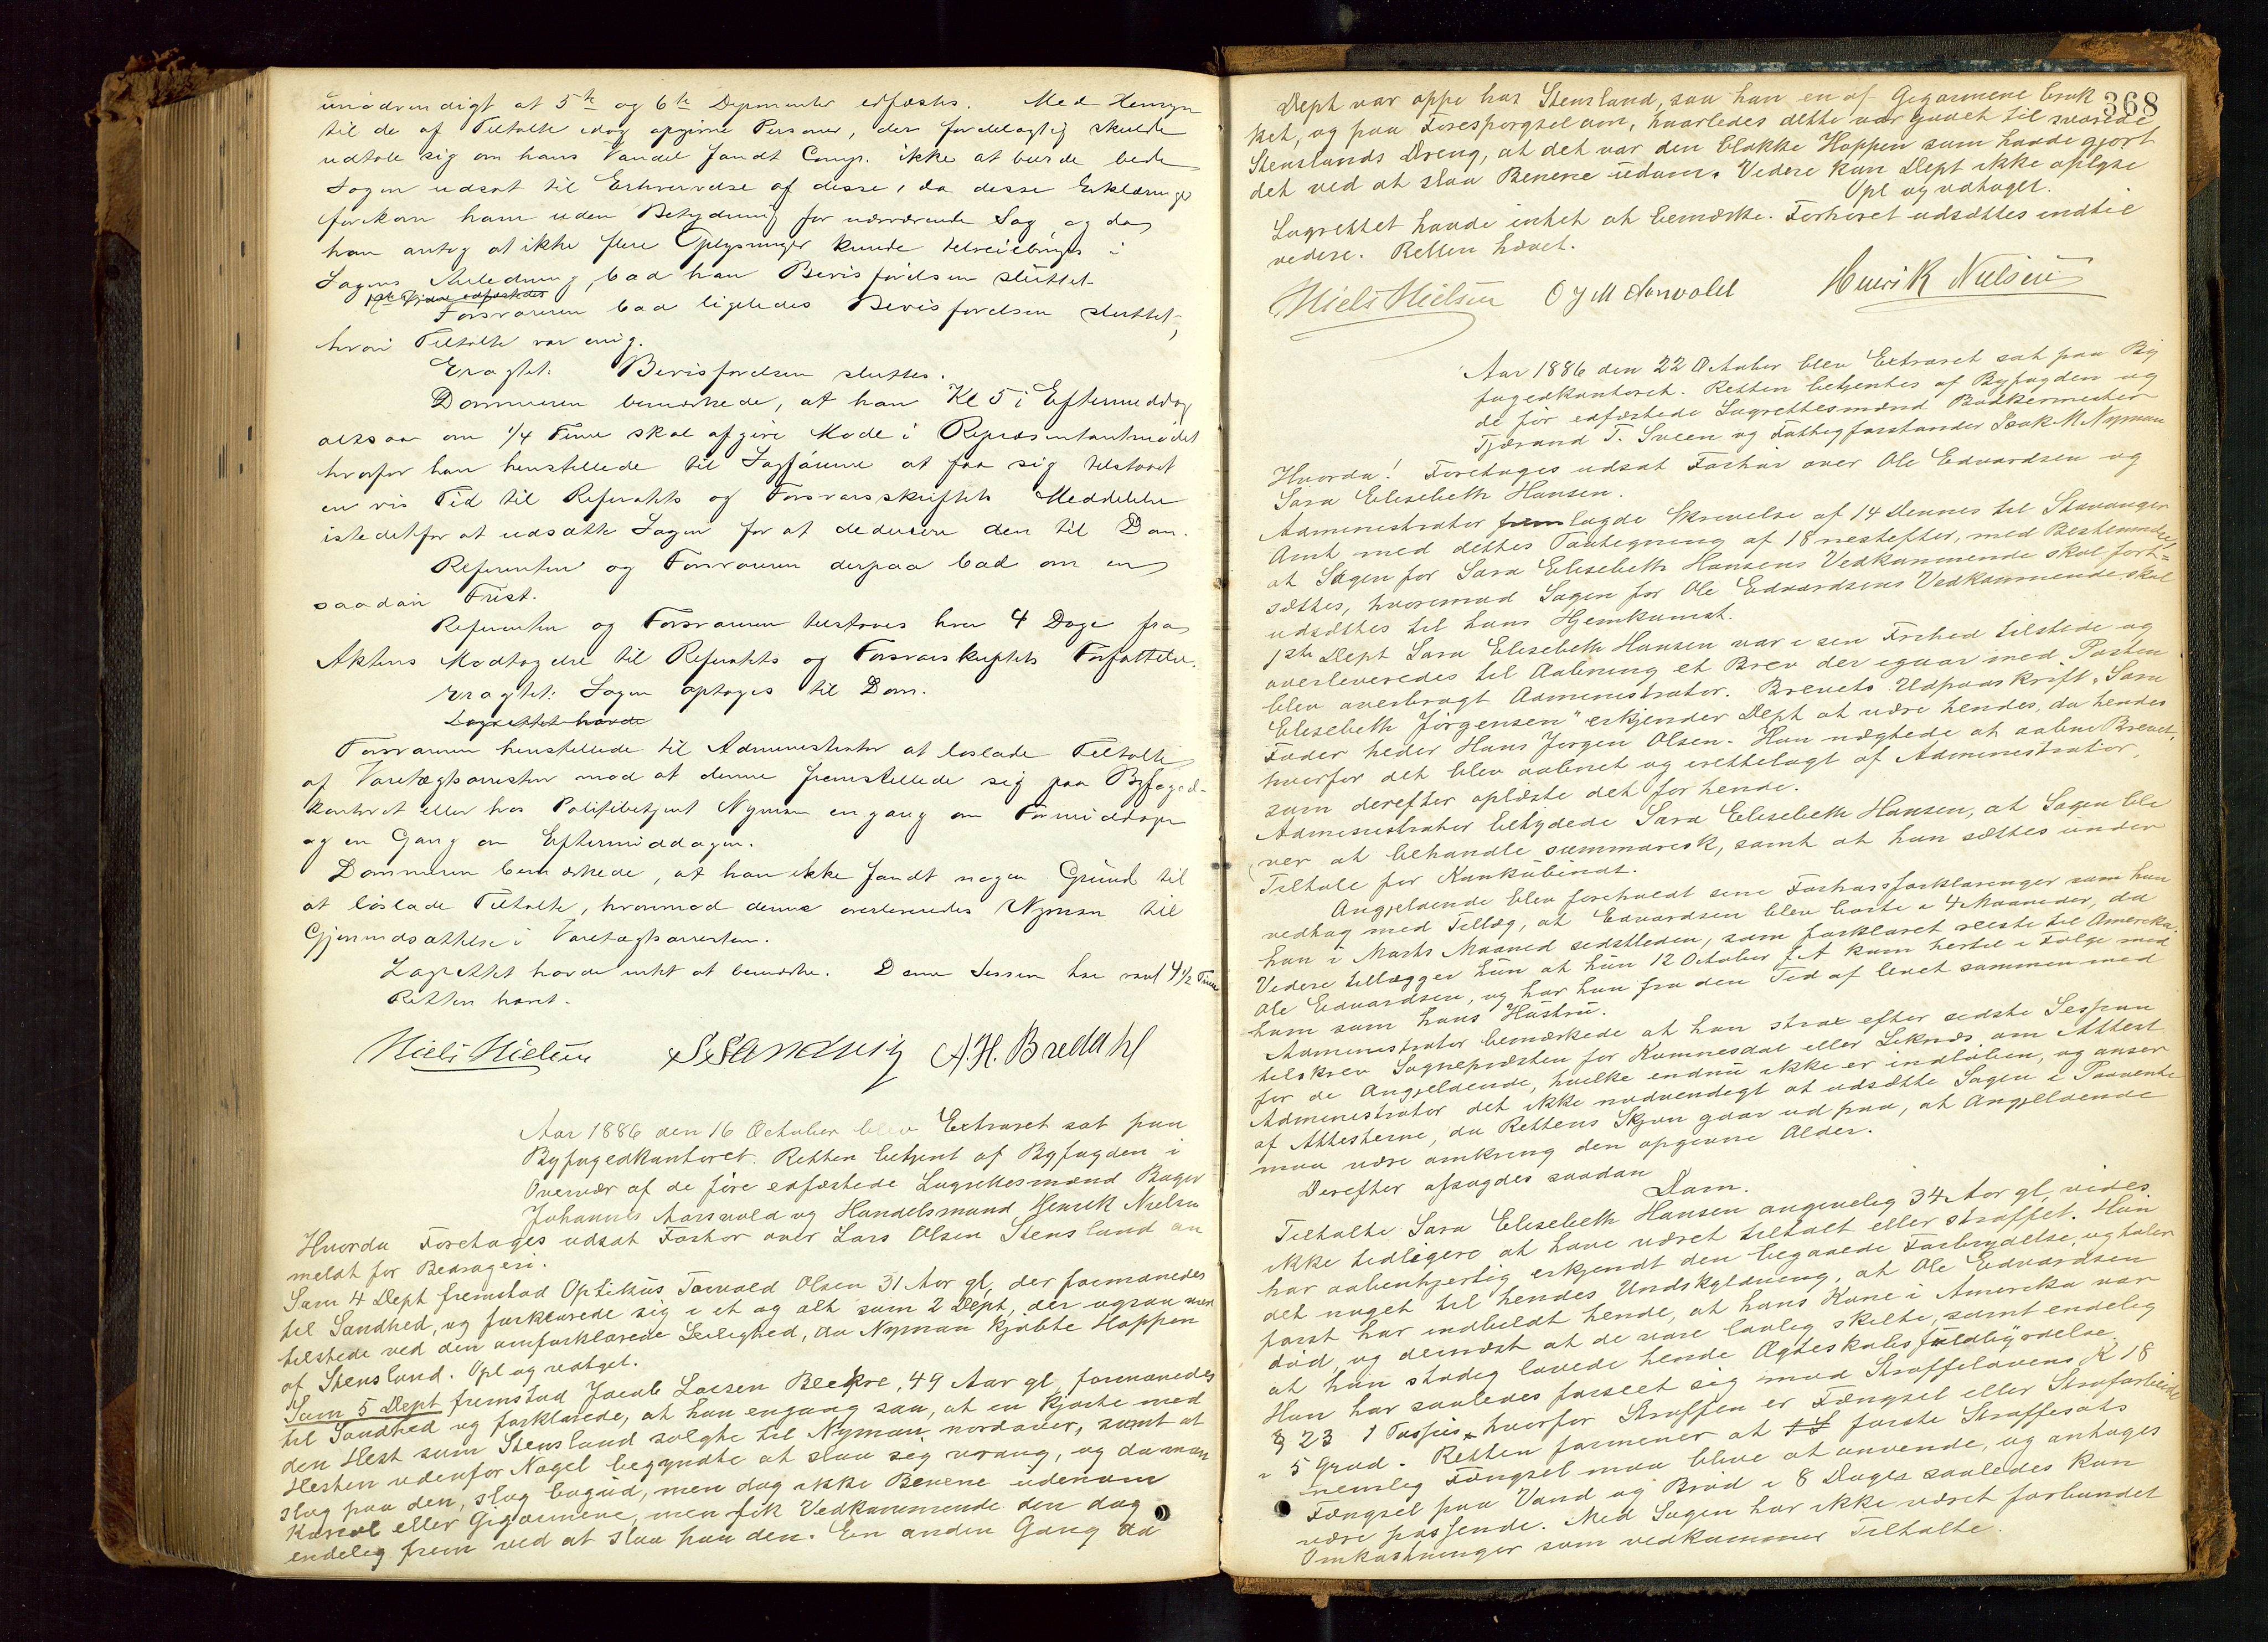 unødvendigt at 5te og 6te Deponenter edfæstes. Med Hensyn
til de af Tiltalte idag opgivne Personer, der fordelagtig skulde
udtale sig om hans Vandel fandt Comp. ikke at burde bede
Sagen udsat til Erhvervelse af disse, da disse Erklæringer
forekom ham uden Betydning for nærværende Sag og da
han antog at ikke flere Oplysninger kunde tilveiebringes i
Sagens Anledning, bad han Bevisførelsen sluttet.
Forsvareren bad ligeledes Bevisførelsen sluttet,
hvori Tiltalte var enig.
Eragtet: Bevisførelsen sluttes.
Dommeren bemærkede, at han Kl 5 i Eftermiddag
altsaa om 1/4 Time skal afgive Møde i Repræsentantmødet
hvorfor han henstillede til Sagførerne at faa sig tilstaaet
en vis Tid til Referatets og Forsvarsskriftets Meddelelse
istedetfor at udsætte Sagen for at deducere den til Dom.
Referenten og Forsvareren derpaa bad om en
saadan Frist.
Referenten og Forsvareren tilstaaes hver 4 Dage fra
Aktens Modtagelse til Referatets og Forsvarsskriftets Forfattelse.
Eragtet: Sagen optages til Dom.
Lagrettet havde
Forsvareren henstillede til Administrator at løslade Tiltalte
af Varetægtsarresten mod at denne fremstillede sig paa Byfoged-
kontoret eller hos Politibetjent Nyman engang om Formiddagen
og en Gang om Eftermiddagen.
Dommeren bemærkede, at han ikke fandt nogen Grund til
at løslade Tiltalte, hvorimod denne overleveredes Nyman til
Gjenindsættelse i Varetægtsarresten.
Lagrettet havde intet at bemærke. Denne Session har varet 4 1/2 Time
Retten hævet.
Niels Nielsen S Sandvig A.H. Bredahl
Aar 1886 den 16 October blev Extraret sat paa
Byfogedkontoret. Retten betjent af Byfogden i
Overvær af de före edfæstede Lagrettesmænd Bager
Johannes Aarsvold og Handelsmand Henrik Nielsen
Hvorda Foretoges udsat Forhør over Lars Olsen Stensland an
meldt for Bedrageri.
Som 4 Dept fremstod Optikus Torvald Olsen 31 Aar gl, der formanedes
til Sandhed, og forklarede sig i et og alt som 2 Dept, der ogsaa var
tilstede ved den omforklarede Leilighed, da Nyman kjøbte Hoppen
af Stensland. Opl og vedtaget.
Som 5 Dept fremstod Jacob Larsen Bleikre, 49 Aar gl, formanedes
til Sandhed og forklarede, at han engang saa, at en kjørte med
den Hest som Stensland solgte til Nyman nordover, samt at
Hesten udenfor Nagel begyndte at slaa sig vrang, og da man
slog paa den, slog bagud, men dog ikke Benene udenom
Kariol eller Gigarmene, men fik Vedkommende den dog
endelig frem ved at slaa paa den. En anden Gang da
368
Dept var oppe hos Stensland, saa han en af Gigarmene bræk
ket, og paa Forespørgsel om, hvorledes dette var gaaet til svarede
Stenslands Dreng, at det var den blakke Hoppen som havde gjort
det ved at slaa Benene udom. Videre kan Dept ikke oplyse
Opl og vdtaget.
Lagrettet havde intet at bemærke. Forhøret udsættes indtil
videre. Retten hævet.
Niels Nielsen O J M Aarsvold Henrik Nielsen
Aar 1886 den 22 October blev Extraret sat paa By
fogedkontoret. Retten betjentes af Byfogden og
de før edfæstede Lagrettesmænd Bødkermester
Tjerand T. Sveen og Fattigforstander Isak M Nyman
Hvorda! Foretoges udsat Forhør over Ole Edvardsen og
Sara Elisebeth Hansen.
Administrator fremlagde Skrivelse af 14 Dennes til Stavanger
Amt med dettes Paategning af 18 nestefter, med Bestemmelse,
at Sagen for Sara Elisebeth Hansens Vedkommende skal fort-
sættes, hvorimod Sagen for Ole Edvardsens Vedkommende skal
udsættes til hans Hjemkomst.
1ste Dept Sara Elisebeth Hansen var i sin Frihed tilstede og
overleveredes til Aabning et Brev der igaar med Posten
blev overbragt Administrator. Brevets Udpaaskrift „Sara
Elisebeth Jörgensen" erkjender Dept at være hendes, da hendes
Fader heder Hans Jørgen Olsen. Hun nægtede at aabne Brevet,
hvorfor det blev aabnet og irettelagt af Administrator,
som derefter oplæste det for hende.
Administrator betydede Sara Elisebeth Hansen, at Sagen bli
ver at behandle summarisk, samt at hun sættes under
Tiltale for Konkubinat.
Angjeldende blev foreholdt sine Forhørsforklaringer som hun
vedtog med Tillæg, at Edvardsen blev borte i 4 Maaneder, da
han i Marts Maaned sidstleden, som forklaret reiste til Amerika.
Videre tillægger hun at hun 12 October f A kom hertil i Følge med
Ole Edvardsen, og har hun fra den Tid af levet sammen med
ham som hans Hustru.
Administrator bemærkede at han strax efter sidste Session
tilskrev Sognepræsten for om Attest
for de Angjeldende, hvilke endnu ikke er indløben, og anser
Administrator det ikke nødvendigt at udsætte Sagen i Paavente
af Attesterne, da Rettens Skjøn gaar ud paa, at Angjeldende
maa være omkring den opgivne Alder.
Derefter afsagdes saadan
Dom.
Tiltalte Sara Elisebeth Hansen angivelig 34 Aar gl, vides
ikke tidligere at have været tiltalt eller straffet. Hun
har aabenhjertig erkjendt den begaaede Forbrydelse, og taler
det noget til hendes Undskyldning, at Ole Edvardsen
først har indbildt hende, at hans Kone i Amerika var
død, og dernæst at de vare lovlig skilte, samt endelig
at han stadig lovede hende Ægteskabsfuldbyrdelse.
Hun har saaledes forseet sig mod Straffelovens K 18
§ 23 1 Passus, hvorfor Straffen er Fængsel eller Strafarbeide
i 5 Grad. Retten formener at første Straffesats
nemlig Fængsel maa blive at anvende, og antages
Fængsel paa Vand og Brød i 8 Dage saaledes kan
være passende. Med Sagen har ikke været forbundet
Omkostninger som vedkommer Tiltalte.